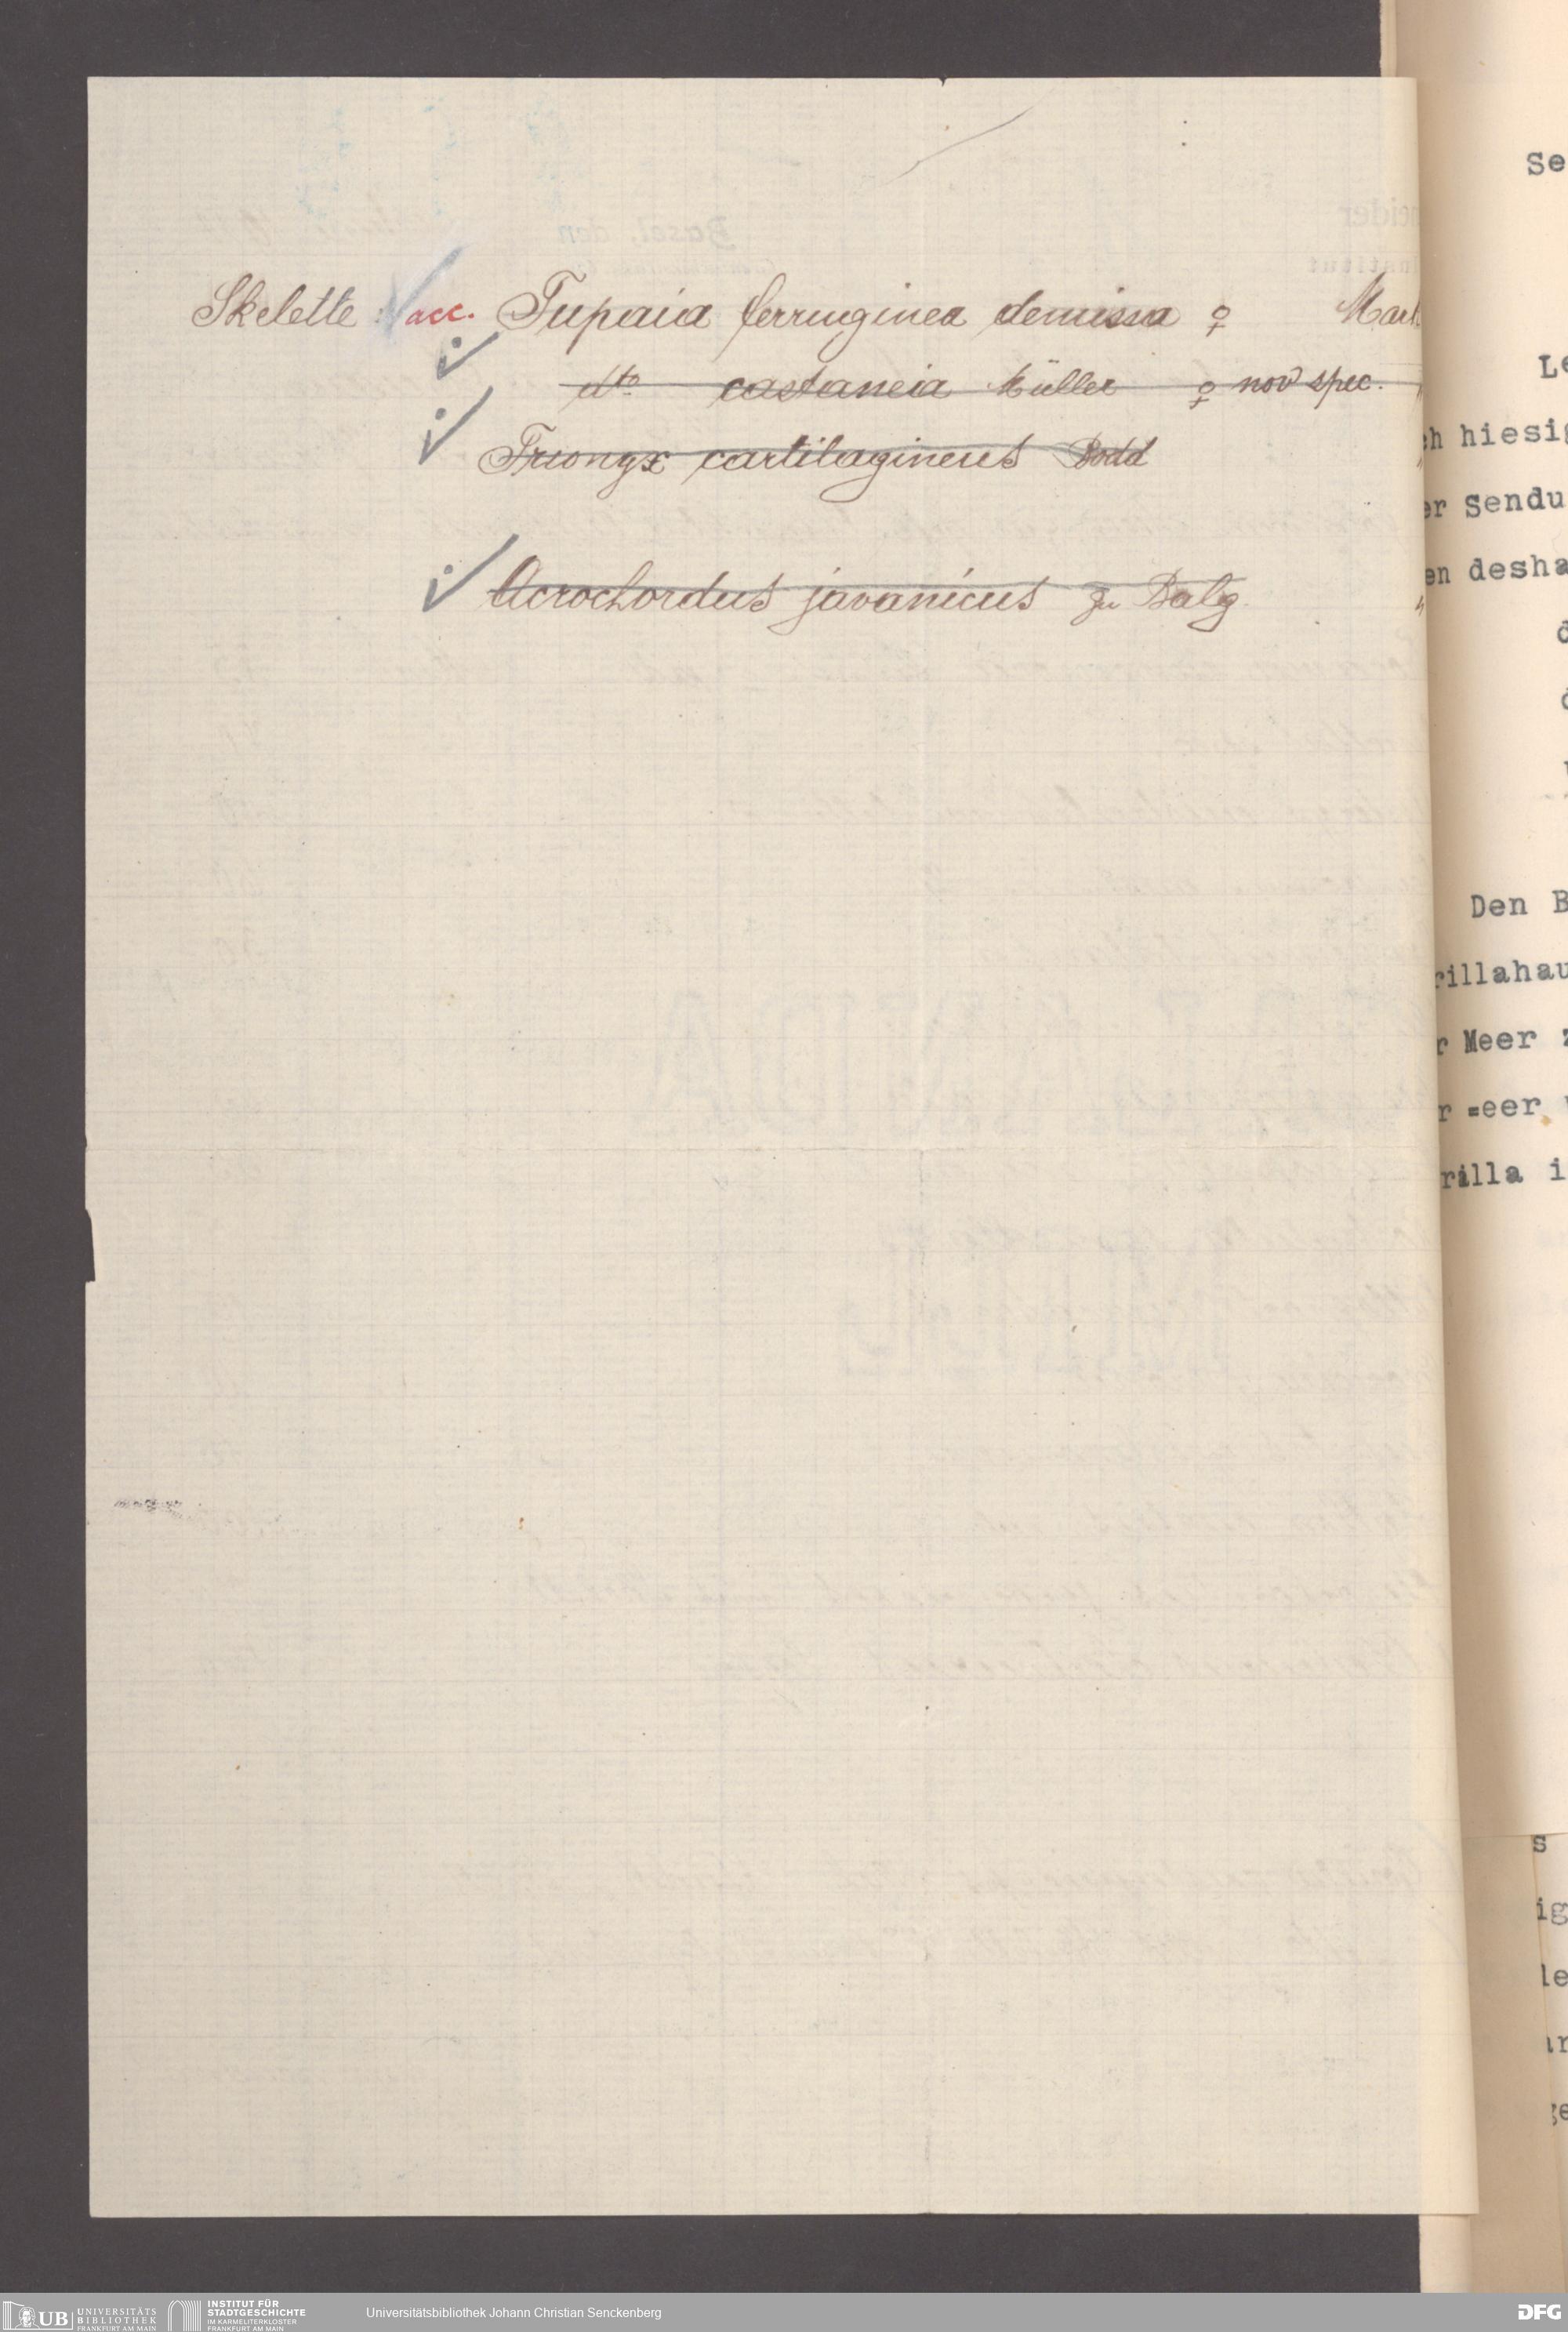 Skelette : acc. Tupaia ferruginea demissa ♀ Mark
dto castaneia Müller ♀ nov spec. "
Trionyx cartilagineus Bodd "
Acrochordus javanicus zu Balg. "
Se
Le
ch hiesig
er Sendu
en desha
Den B
rillahau
r Meer z
r =eer
rilla i
s
ig
le
ar
ge
UB UNIVERSITÄTS BIBLIOTHEK FRANKFURT AM MAIN
INSTITUT FÜR STADTGESCHICHTE IM KARMELITERKLOSTER FRANKFURT AM MAIN
Universitätsbibliothek Johann Christian Senckenberg
DFG